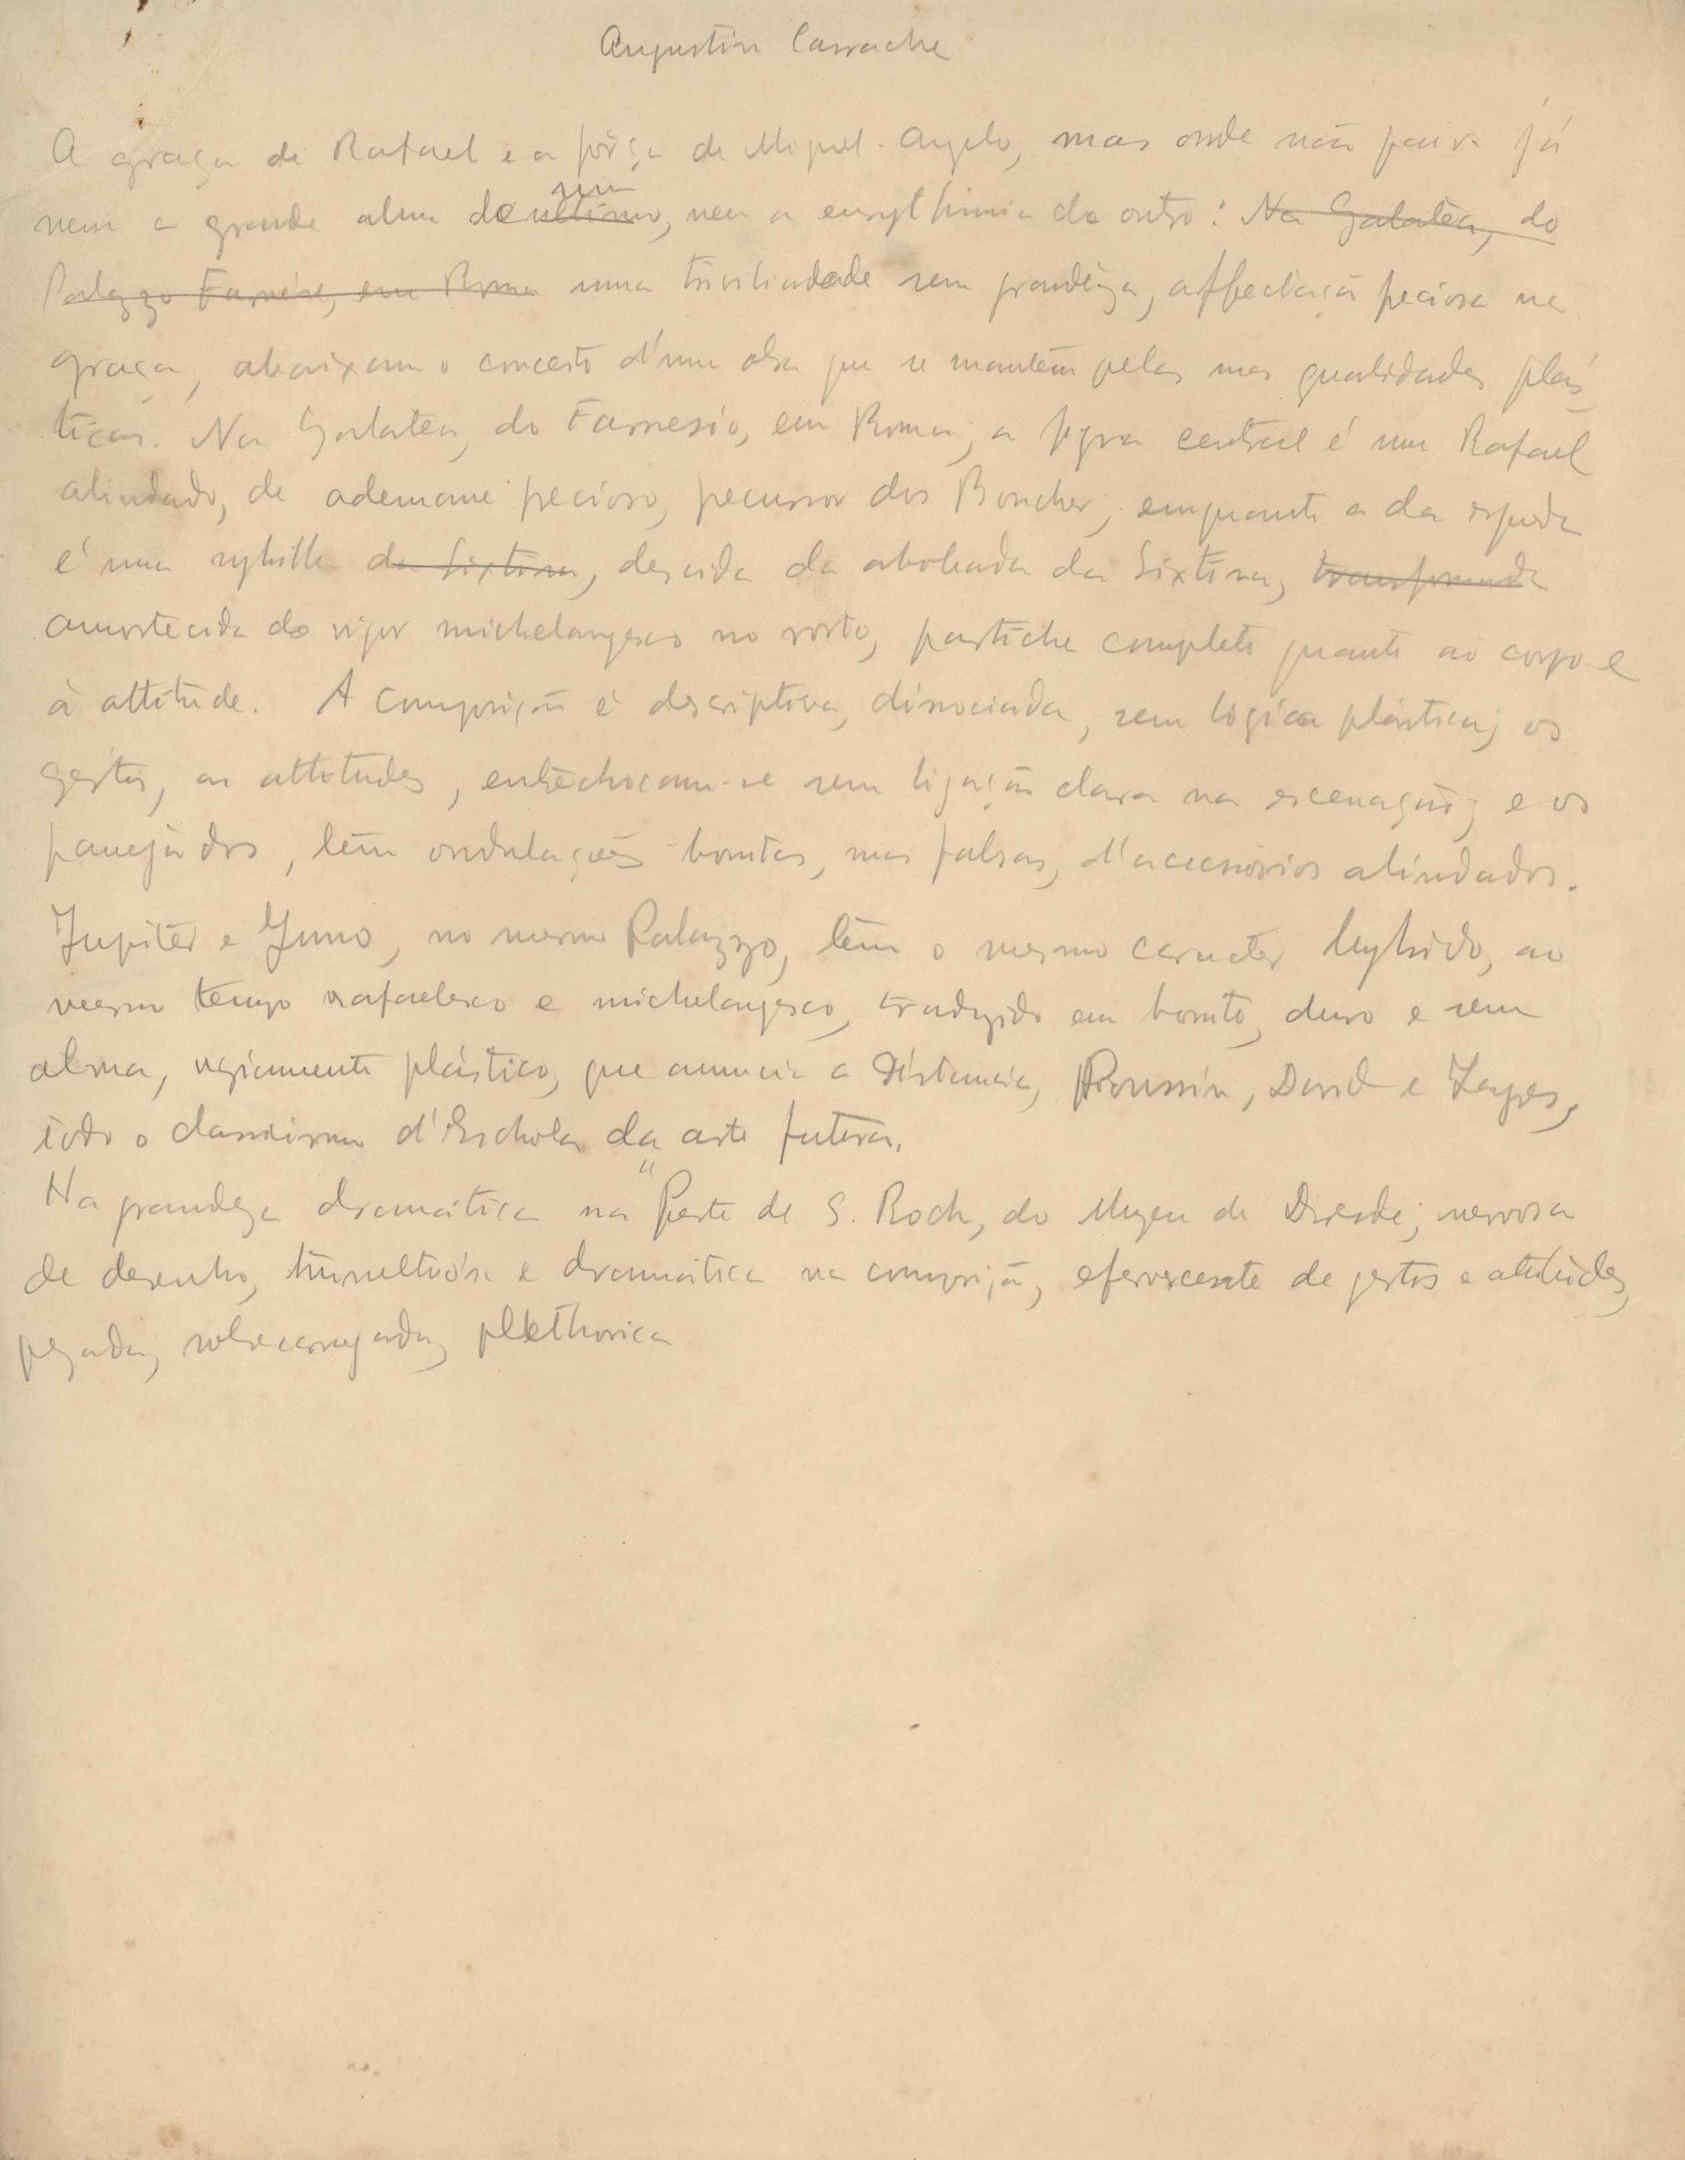 Augustin Carrache
A graça de Rafael e a fôrça de Miguel-Angelo, mas onde não paira já
nem a grande alma do um ultimo, nem a eurythimia do outro: Na Galatéa, do
Palazzo Farnése, em Roma uma trivilindade sem grandêza, affectação preciosa na
graça, abaixam o conceito d'uma obra que se mantêm pelas suas qualidades plás
ticas. Na Galatea, do Farnesio, em Roma, a figura central é um Rafael
alindado, de ademane precioso, precursor dos Boucher; emquanto a da esquerda
é uma sybilla da Sixtina, descida da abobada da Sixtina, transformada
amortecida do vigor michelangesco no rosto, pastiche completo quanto ao corpo e
à attitude. A composição é descriptiva, dissociada, sem logica plástica; os
géstos, as attitudes, entrechocam-se sem ligação clara na escenação; e os
panejados, têm ondulações bonitas, mas falsas, d'accessórios alindados.
Jupiter e Juno, no mesmo Palazzo, têm o mesmo caracter hybrido, ao
mesmo tempo rafaelesco e michelangesco, traduzido em bonito, duro e sem
alma, regiamente plástico, que anuncia a distancia, Poussin, David e Ingres,
todo o classicismo d'Eschola da arte futura.
Ha grandeza dramática na "Peste de S. Roch, do Muzeu de Dresde; nervosa
de desenho, tumultuósa e dramática na composição, efervescente de gestos e attitudes,
pezada, sobrecarregada, plethorica